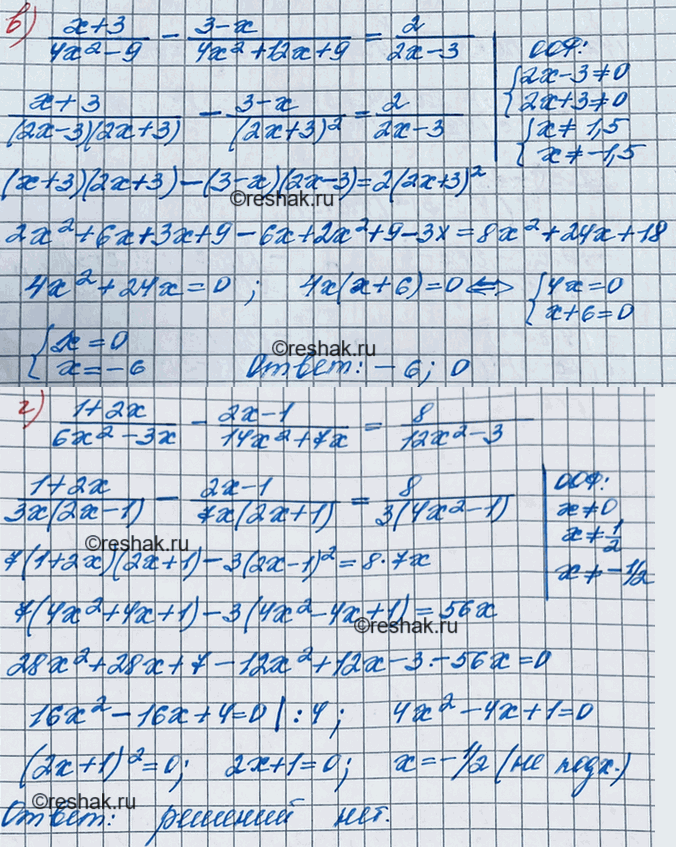 в) (x+3)/(4x²-9) - (3-x)/(4x²+12x+9) = 2/(2x-3)
ООФ:
{2x-3≠0
{2x+3≠0
{x≠1,5
{x≠-1,5
(x+3)/((2x-3)(2x+3)) - (3-x)/((2x+3)²) = 2/(2x-3)
(x+3)(2x+3)-(3-x)(2x-3)=2(2x+3)²
©reshak.ru
2x²+6x+3x+9-6x+2x²+9-3x=8x²+24x+18
4x²+24x=0; 4x(x+6)=0 <=> {4x=0
{x+6=0
©reshak.ru
{x=0
{x=-6
Ответ: -6; 0
г) (1+2x)/(6x²-3x) - (2x-1)/(14x²+7x) = 8/(12x²-3)
(1+2x)/(3x(2x-1)) - (2x-1)/(7x(2x+1)) = 8/(3(4x²-1))
ООФ:
x≠0
x≠1/2
x≠-1/2
©reshak.ru
7(1+2x)(2x+1)-3(2x-1)²=8·7x
7(4x²+4x+1)-3(4x²-4x+1)=56x
©reshak.ru
28x²+28x+7-12x²+12x-3-56x=0
16x²-16x+4=0 |:4; 4x²-4x+1=0
(2x+1)²=0; 2x+1=0; x=-1/2 (не подх.)
©reshak.ru
Ответ: решений нет.